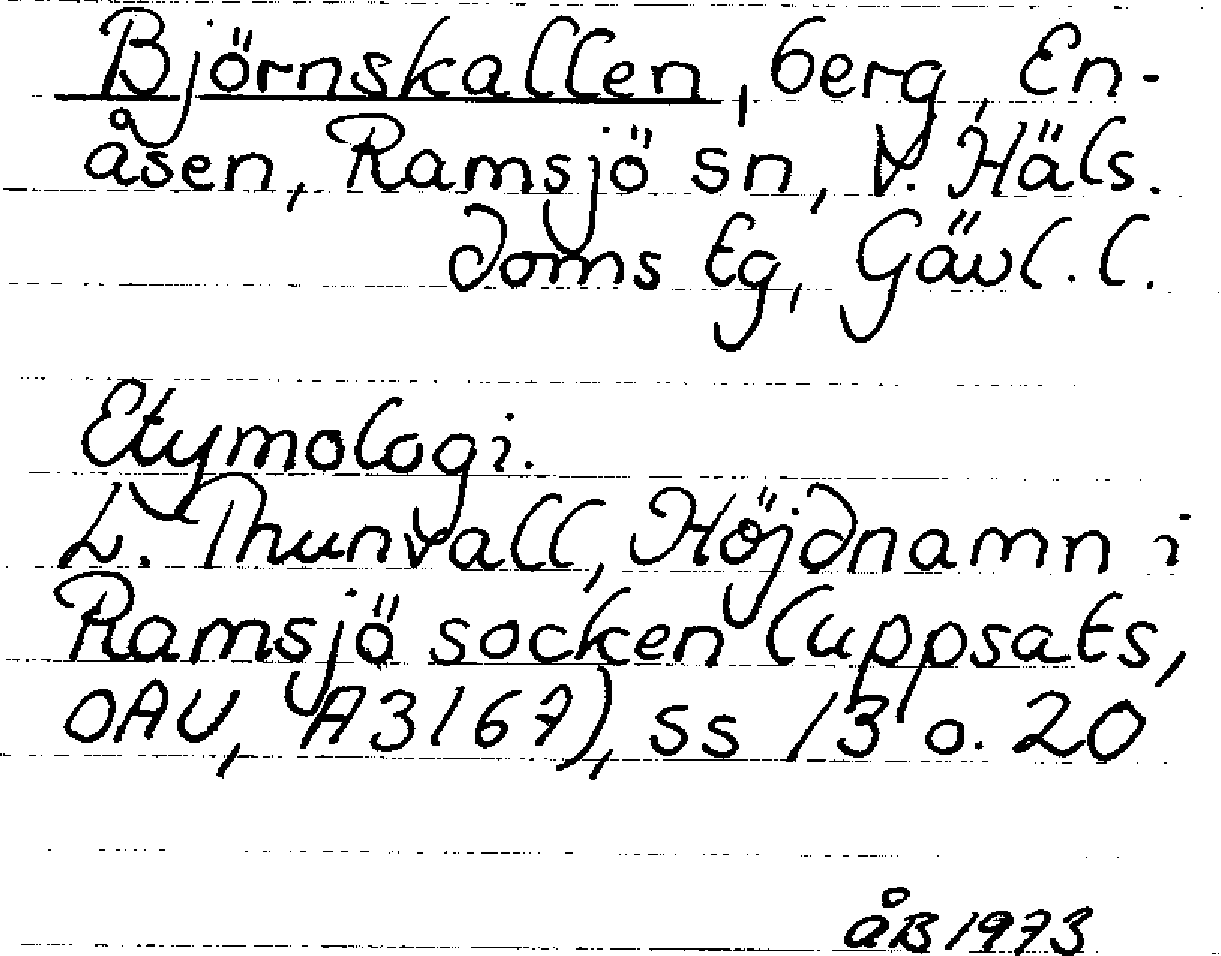 Björnskallen, berg, En-
åsen, Ramsjö sn, V. Häls.
doms tg, Gävl. l.
Etymologi.
L. Thunvall, Höjdnamn i
Ramsjö socken (uppsats,
OAU, A3167), ss 13 o. 20
ÅB 1973